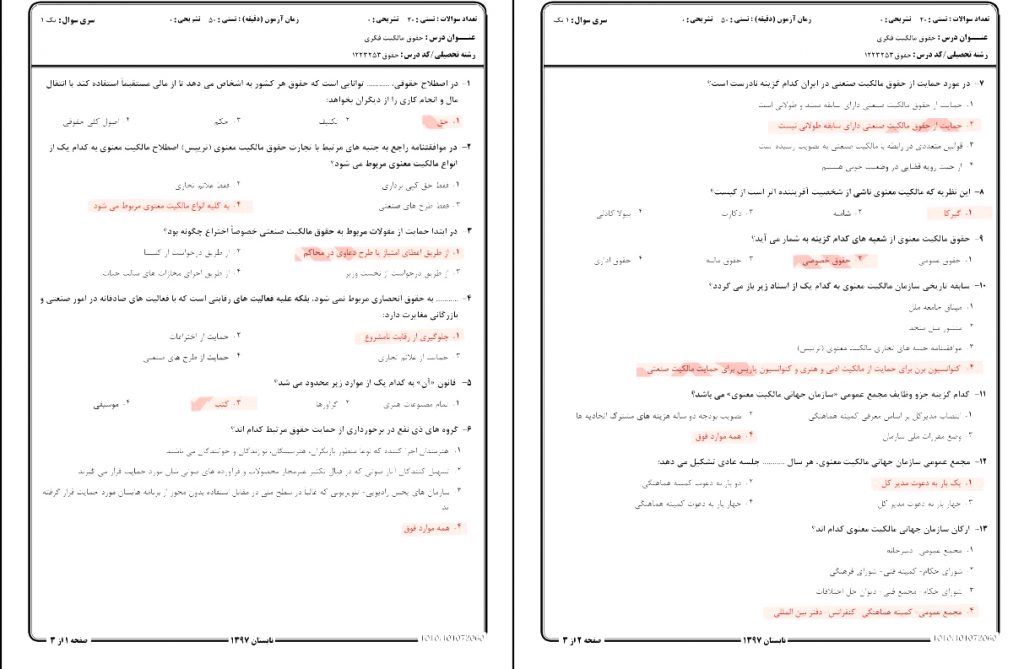 تعداد سوالات : تستی : ۲۰ تشریحی : ۰
زمان آزمون (دقیقه) : تستی : ۵۰ تشریحی : ۰
سری سوال : یک ۱
عنـــوان درس : حقوق مالکیت فکری
رشته تحصیلی/کد درس : حقوق ۱۲۲۳۲۵۳
۱- در اصطلاح حقوقی، .......... توانایی است که حقوق هر کشور به اشخاص می دهد تا از مالی مستقیماً استفاده کند یا انتقال
مال و انجام کاری را از دیگران بخواهد:
۱. حق ۲. تکلیف ۳. حکم ۴. اصول کلی حقوقی
۲- در موافقتنامه راجع به جنبه های مرتبط با تجارت حقوق مالکیت معنوی (تریپس) اصطلاح مالکیت معنوی به کدام یک از
انواع مالکیت معنوی مربوط می شود؟
۱. فقط حق کپی برداری ۲. فقط علائم تجاری
۳. فقط طرح های صنعتی ۴. به کلیه انواع مالکیت معنوی مربوط می شود
۳- در ابتدا حمایت از مقولات مربوط به حقوق مالکیت صنعتی خصوصاً اختراع چگونه بود؟
۱. از طریق اعطای امتیاز یا طرح دعاوی در محاکم ۲. از طریق درخواست از کلیسا
۳. از طریق درخواست از نخست وزیر ۴. از طریق اجرای مجازات های سالب حیات
۴- .......... به حقوق انحصاری مربوط نمی شود، بلکه علیه فعالیت های رقابتی است که با فعالیت های صادقانه در امور صنعتی و
بازرگانی مغایرت دارد:
۱. جلوگیری از رقابت نامشروع ۲. حمایت از اختراعات
۳. حمایت از علائم تجاری ۴. حمایت از طرح های صنعتی
۵- قانون «آن» به کدام یک از موارد زیر محدود می شد؟
۱. تمام مصنوعات هنری ۲. گراورها ۳. کتب ۴. موسیقی
۶- گروه های ذی نفع در برخورداری از حمایت حقوق مرتبط کدام اند؟
۱. هنرمندان اجرا کننده که نوعا منظور بازیگران، هنرپیشگان، نوازندگان و خوانندگان می باشند.
۲. تسهیل کنندگان آثار صوتی که در قبال تکثیر غیرمجاز محصولات و فراورده های صوتی شان مورد حمایت قرار می گیرند
۳. سازمان های پخش رادیویی- تلویزیونی که غالبا در سطح ملی در مقابل استفاده بدون مجوز از برنامه هایشان مورد حمایت قرار گرفته
اند
۴. همه موارد فوق
صفحه ۱ از ۳
تابستان ۱۳۹۷
1010/101072060
تعداد سوالات : تستی : ۲۰ تشریحی : ۰
زمان آزمون (دقیقه) : تستی : ۵۰ تشریحی : ۰
سری سوال : ۱ یک
عنـــوان درس : حقوق مالکیت فکری
رشته تحصیلی/کد درس : حقوق ۱۲۲۳۲۵۳
۷- در مورد حمایت از حقوق مالکیت صنعتی در ایران کدام گزینه نادرست است؟
۱. حمایت از حقوق مالکیت صنعتی دارای سابقه ممتد و طولانی است
۲. حمایت از حقوق مالکیت صنعتی دارای سابقه طولانی نیست
۳. قوانین متعددی در رابطه با مالکیت صنعتی به تصویب رسیده است
۴. از حیث رویه قضایی در وضعیت خوبی هستیم
۸- این نظریه که مالکیت معنوی ناشی از شخصیت آفریننده اثر است از کیست؟
۱. گیرکا ۲. شاسه ۳. دکارت ۴. پیولا کاذلی
۹- حقوق مالکیت معنوی از شعبه های کدام گزینه به شمار می آید؟
۱. حقوق عمومی ۲. حقوق خصوصی ۳. حقوق ماسه ۴. حقوق اداری
۱۰- سابقه تاریخی سازمان مالکیت معنوی به کدام یک از اسناد زیر باز می گردد؟
۱. میثاق جامعه ملل
۲. منشور ملل متحد
۳. موافقتنامه جنبه های تجاری مالکیت معنوی (تریپس)
۴. کنوانسیون برن برای حمایت از مالکیت ادبی و هنری و کنوانسیون پاریس برای حمایت مالکیت صنعتی
۱۱- کدام گزینه جزو وظایف مجمع عمومی «سازمان جهانی مالکیت معنوی» می باشد؟
۱. انتصاب مدیرکل بر اساس معرفی کمیته هماهنگی ۲. تصویب بودجه دو ساله هزینه های مشترک اتحادیه ها
۳. وضع مقررات ملی سازمان ۴. همه موارد فوق
۱۲- مجمع عمومی سازمان جهانی مالکیت معنوی، هر سال .......... جلسه عادی تشکیل می دهد:
۱. یک بار به دعوت مدیر کل ۲. دو بار به دعوت کمیته هماهنگی
۳. چهار بار به دعوت مدیر کل ۴. چهار بار به دعوت کمیته هماهنگی
۱۳- ارکان سازمان جهانی مالکیت معنوی کدام اند؟
۱. مجمع عمومی- دبیرخانه
۲. شورای حکام- کمیته فنی- شورای فرهنگی
۳. شورای حکام- مجمع فنی- دیوان حل اختلافات
۴. مجمع عمومی- کمیته هماهنگی- کنفرانس- دفتر بین المللی
صفحه ۲ از ۳
تابستان ۱۳۹۷
1010/101072060